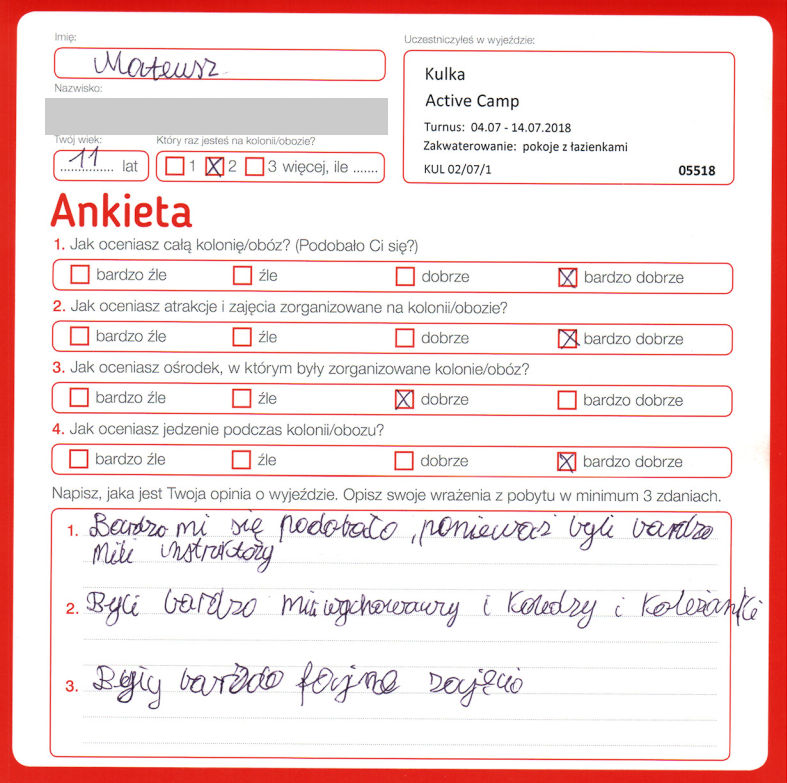 Imię:
Mateusz
Nazwisko:
Twój wiek:
11 lat
Który raz jesteś na kolonii/obozie?
1 2 3 więcej, ile .......
Uczestniczyłeś w wyjeździe:
Kulka
Active Camp
Turnus: 04.07 - 14.07.2018
Zakwaterowanie: pokoje z łazienkami
KUL 02/07/1 05518
Ankieta
1. Jak oceniasz całą kolonię/obóz? (Podobało Ci się?)
bardzo źle źle dobrze bardzo dobrze
2. Jak oceniasz atrakcje i zajęcia zorganizowane na kolonii/obozie?
bardzo źle źle dobrze bardzo dobrze
3. Jak oceniasz ośrodek, w którym były zorganizowane kolonie/obóz?
bardzo źle źle dobrze bardzo dobrze
4. Jak oceniasz jedzenie podczas kolonii/obozu?
bardzo źle źle dobrze bardzo dobrze
Napisz, jaka jest Twoja opinia o wyjeździe. Opisz swoje wrażenia z pobytu w minimum 3 zdaniach.
1. Bardzo mi się podobało, ponieważ byli bardzo
mili instruktorzy
2. Byli bardzo mili i Koledzy i Koleżanki
3. Były bardzo fajne zajęcia